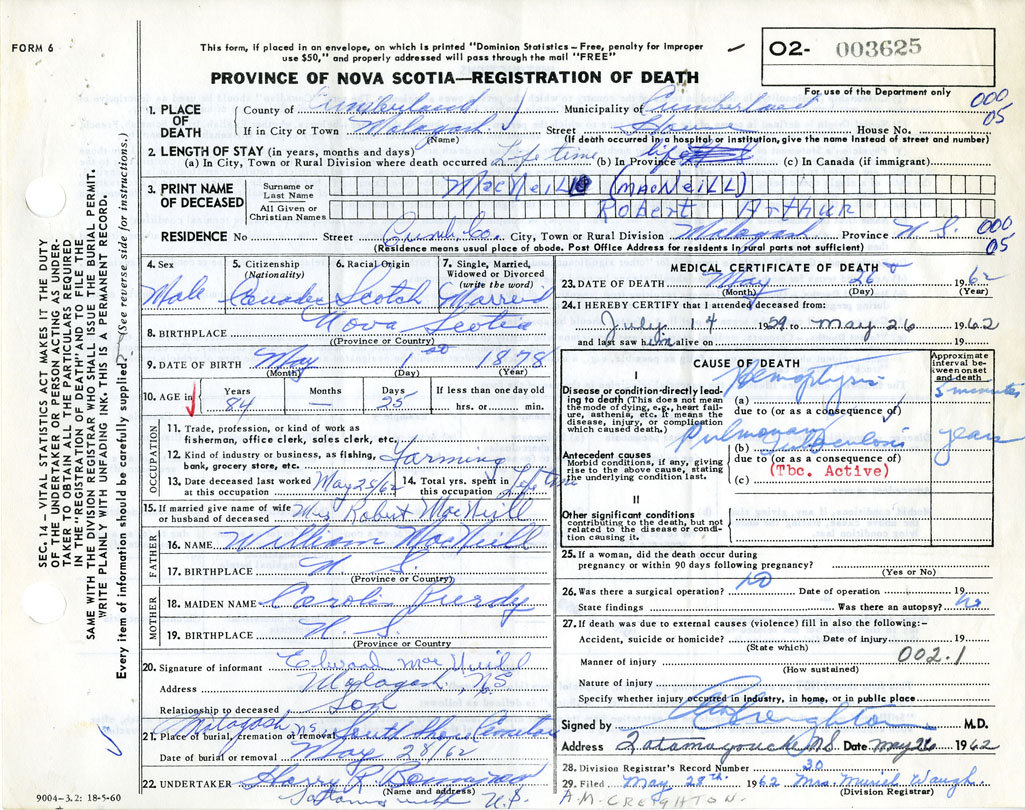 FORM 6
This form, if placed in an envelope, on which is printed "Dominion Statistics – Free, penalty for improper
use $50," and properly addressed will pass through the mail "FREE"
O2- 003625
For use of the Department only
PROVINCE OF NOVA SCOTIA—REGISTRATION OF DEATH
000
05
1. PLACE OF DEATH
County of Cumberland Municipality of Cumberland
If in City or Town Malagash Street Home House No.
(Name) (If death occurred in hospital or institution, give the name instead of street and number)
2. LENGTH OF STAY (in years, months and days)
(a) In City, Town or Rural Division where death occurred Life time (b) In Province life (c) In Canada (if immigrant)
3. PRINT NAME OF DECEASED
Surname or Last Name MacNeill (MACNEILL)
All Given or Christian Names Robert Arthur
RESIDENCE No Street Cumb. Co. City, Town or Rural Division Malagash Province N.S.
000
05
(Residence means usual place of abode. Post Office Address for residents in rural parts not sufficient)
4. Sex Male
5. Citizenship (Nationality)
6. Racial Origin Scotch
7. Single, Married, Widowed or Divorced (write the word) Married
8. BIRTHPLACE Nova Scotia
(Province or Country)
9. DATE OF BIRTH May 1st 1878
(Month) (Day) (Year)
10. AGE in Years 84 Months — Days 25 If less than one day old hrs. or min.
OCCUPATION
11. Trade, profession, or kind of work as fisherman, office clerk, sales clerk, etc.
12. Kind of industry or business, as fishing, bank, grocery store, etc. Farming
13. Date deceased last worked at this occupation May 25/62
14. Total yrs. spent in this occupation Life time
15. If married give name of wife or husband of deceased Mrs Robert MacNeill
FATHER
16. NAME William MacNeill
17. BIRTHPLACE N. S.
(Province or Country)
MOTHER
18. MAIDEN NAME Purdy
19. BIRTHPLACE N. S.
(Province or Country
20. Signature of informant Elwood MacNeill
Address Malagash, NS
Relationship to deceased Son
Malagash NS
21. Place of burial, cremation or removal South Shore Cemetery
Date of burial or removal May 28/62
22. UNDERTAKER Harry R
(Name and address)
Tatamagouche N.S.
9004-3.2: 18-5-60
MEDICAL CERTIFICATE OF DEATH
23. DATE OF DEATH May 26 1962
(Month) (Day) (Year)
24. I HEREBY CERTIFY that I attended deceased from:
July 14 1959 to May 26 1962
and last saw him alive on 19
CAUSE OF DEATH
Approximate interval between onset and death
I
Disease or condition directly leading to death (This does not mean the mode of dying, e.g., heart failure, asthenia, etc. It means the disease, injury, or complication which caused death.)
(a) Hemoptysis 5 minutes
due to (or as a consequence of)
Antecedent causes
Morbid conditions, if any, giving rise to the above cause, stating the underlying condition last.
(b) Pulmonary Tuberculosis years
due to (or as a consequence of)
(Tbc. Active)
(c)
II
Other significant conditions
contributing to the death, but not related to the disease or condition causing it.
25. If a woman, did the death occur during
pregnancy or within 90 days following pregnancy?
(Yes or No)
26. Was there a surgical operation? no Date of operation 19
State findings Was there an autopsy? no
27. If death was due to external causes (violence) fill in also the following:–
Accident, suicide or homicide? Date of injury 19
(State which)
Manner of injury 002.1
(How sustained)
Nature of injury
Specify whether injury occurred in industry, in home, or in public place
Signed by Creighton M.D.
Address Tatamagouche N.S. Date May 26 1962
28. Division Registrar's Record Number 20
29. Filed May 28th 1962 Mrs. Muriel Waugh
(Division Registrar)
A.M. CREIGHTON.
SEC. 14—VITAL STATISTICS ACT MAKES IT THE DUTY
OF THE UNDERTAKER OR PERSON ACTING AS UNDER-
TAKER TO OBTAIN ALL THE PARTICULARS REQUIRED
IN THE "REGISTRATION OF DEATH" AND TO FILE THE
SAME WITH THE DIVISION REGISTRAR WHO SHALL ISSUE THE BURIAL PERMIT.
WRITE PLAINLY WITH UNFADING INK. THIS IS A PERMANENT RECORD.
Every item of information should be carefully supplied. (See reverse side for instructions.)